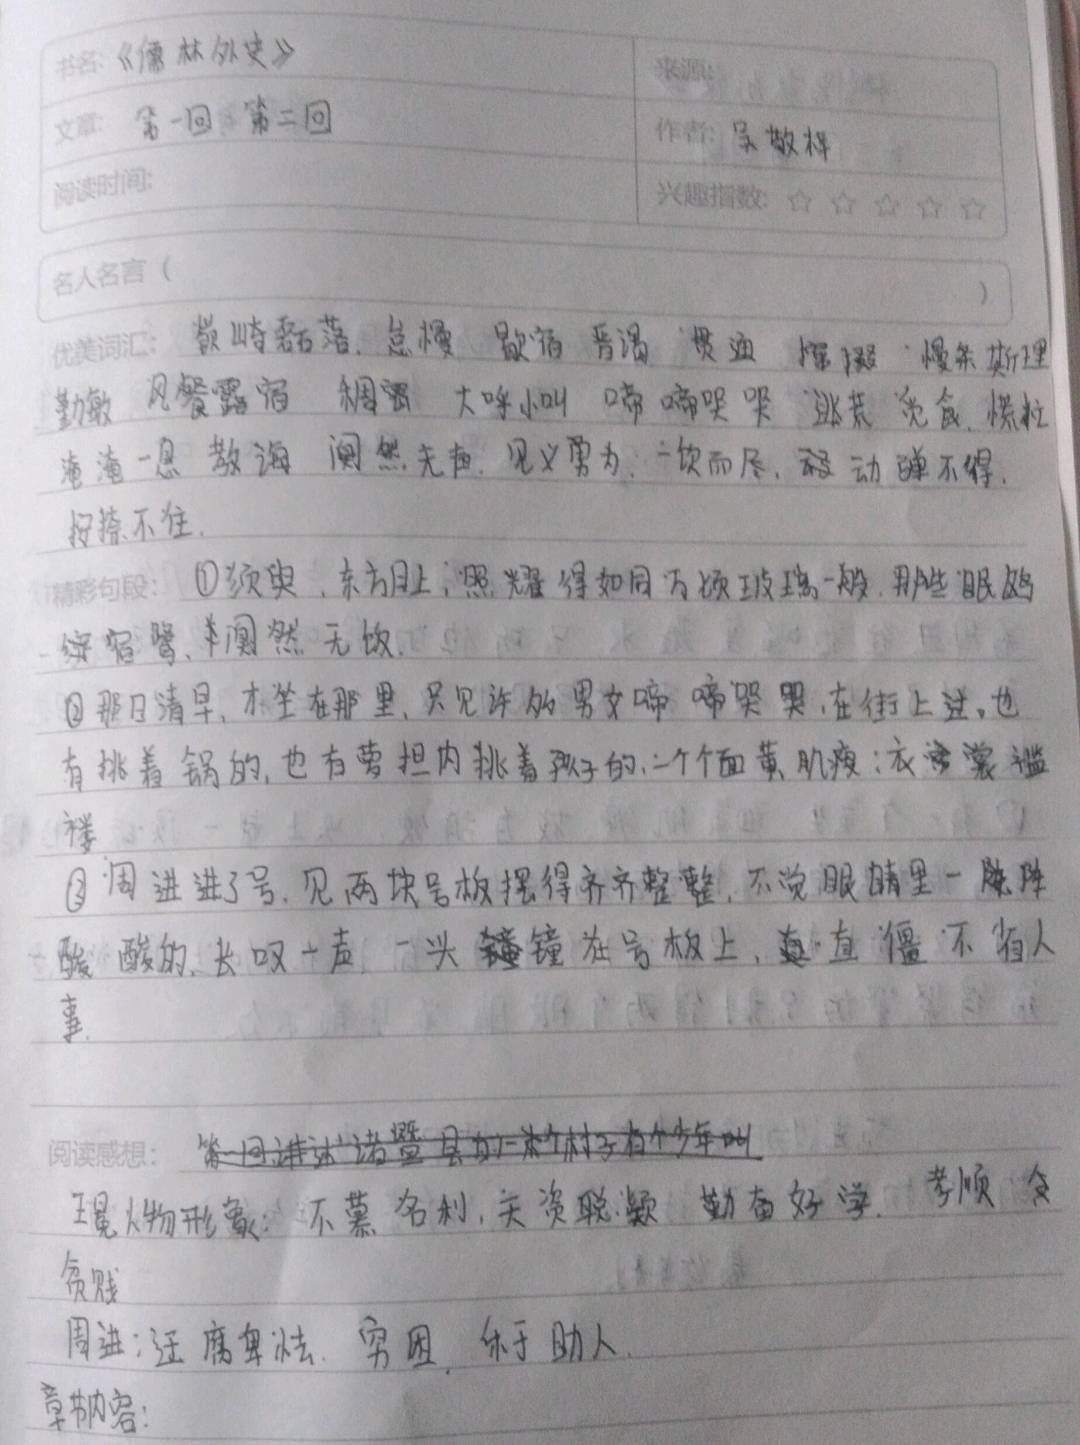 书名:《儒林外史》
来源:
文章: 第一回 第二回
作者: 吴敬梓
阅读时间:
兴趣指数: ☆ ☆ ☆ ☆ ☆
名人名言（ ）
优美词汇: 嵚崎磊落、怠慢 歇宿 贯通 慢条斯理
勤敏 风餐露宿 稠密 大呼小叫 啼啼哭哭 逃荒 觅食、慌忙
淹淹一息 教诲 阒然无声、见义勇为、一饮而尽、动弹不得、
按捺不住、
精彩句段: ①须臾、东方月上，照耀得如同万顷玻璃一般、那些眠鸥
宿鹭、阒然无
②那日清早、才坐在那里、只见许多男女啼啼哭哭、在街上过。也
有挑着锅的、也有萝担内挑着孩子的、一个个面黄肌瘦；衣裳褴
褛
③周进进了号、见两块号板摆得齐齐整整、不觉眼睛里一阵阵
酸酸的、长叹一声 一头撞在号板上、直僵不省人
事、
阅读感想: 第一回讲述诸暨县有个村子有个少年叫
王冕人物形象: 不慕名利、天资聪颖 勤奋好学、孝顺
贫贱
周进: 迂腐卑怯、穷困、乐于助人、
章节内容: